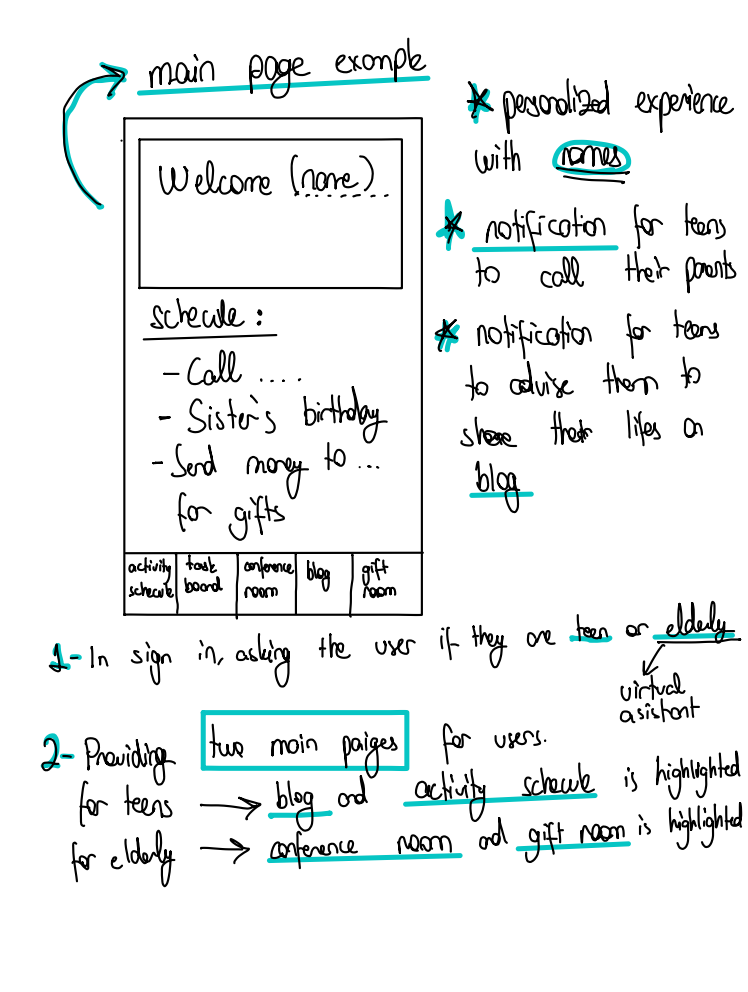 main page example
Welcome (name)
schecule:
- Call ....
- Sister's birthday
- Send money to ...
for gifts
activity schecule
task board
conference room
blog
gift room
* pesonalized experience
with names
* notification for teens
to call their parents
* notification for teens
to advise them to
share their lifes on
blog
1- In sign in, asking the user if they are teen or elderly
virtual
asistant
2- Providing two main paiges for users.
for teens → blog and activity schecule is highlighted
for elderly → conference room and gift room is highlighted